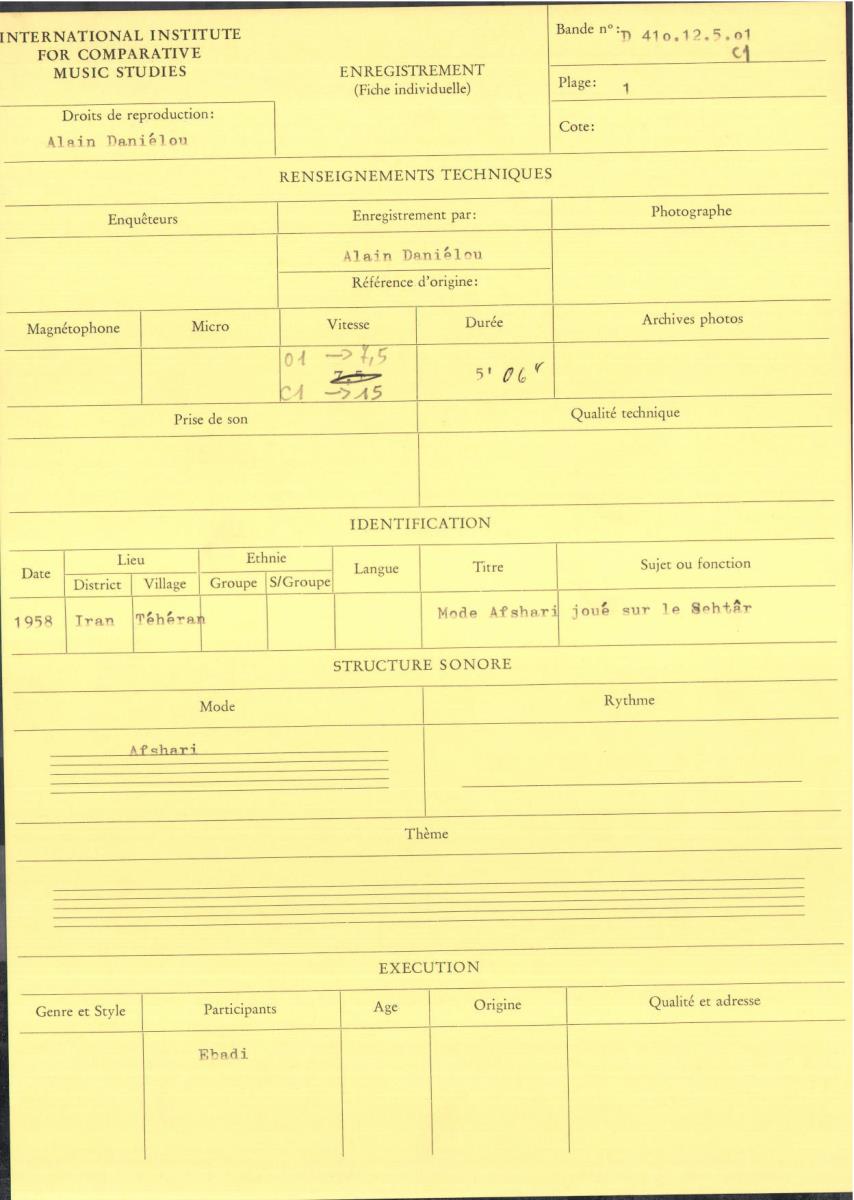 INTERNATIONAL INSTITUTE
FOR COMPARATIVE
MUSIC STUDIES
ENREGISTREMENT
(Fiche individuelle)
Bande nº: D 410.12.5.01
C1
Plage: 1
Cote:
Droits de reproduction:
Alain Daniélou
RENSEIGNEMENTS TECHNIQUES
Enquêteurs
Enregistrement par:
Photographe
Alain Daniélou
Référence d'origine:
Magnétophone
Micro
Vitesse
Durée
Archives photos
01 -> 7,5
7,5
C1 -> 15
5' 06"
Prise de son
Qualité technique
IDENTIFICATION
Date
Lieu
Ethnie
Langue
Titre
Sujet ou fonction
District
Village
Groupe
S/Groupe
1958 Iran Téhéran Mode Afshari joué sur le Sehtâr
STRUCTURE SONORE
Mode
Rythme
Afshari
Thème
EXECUTION
Genre et Style
Participants
Age
Origine
Qualité et adresse
Ebadi